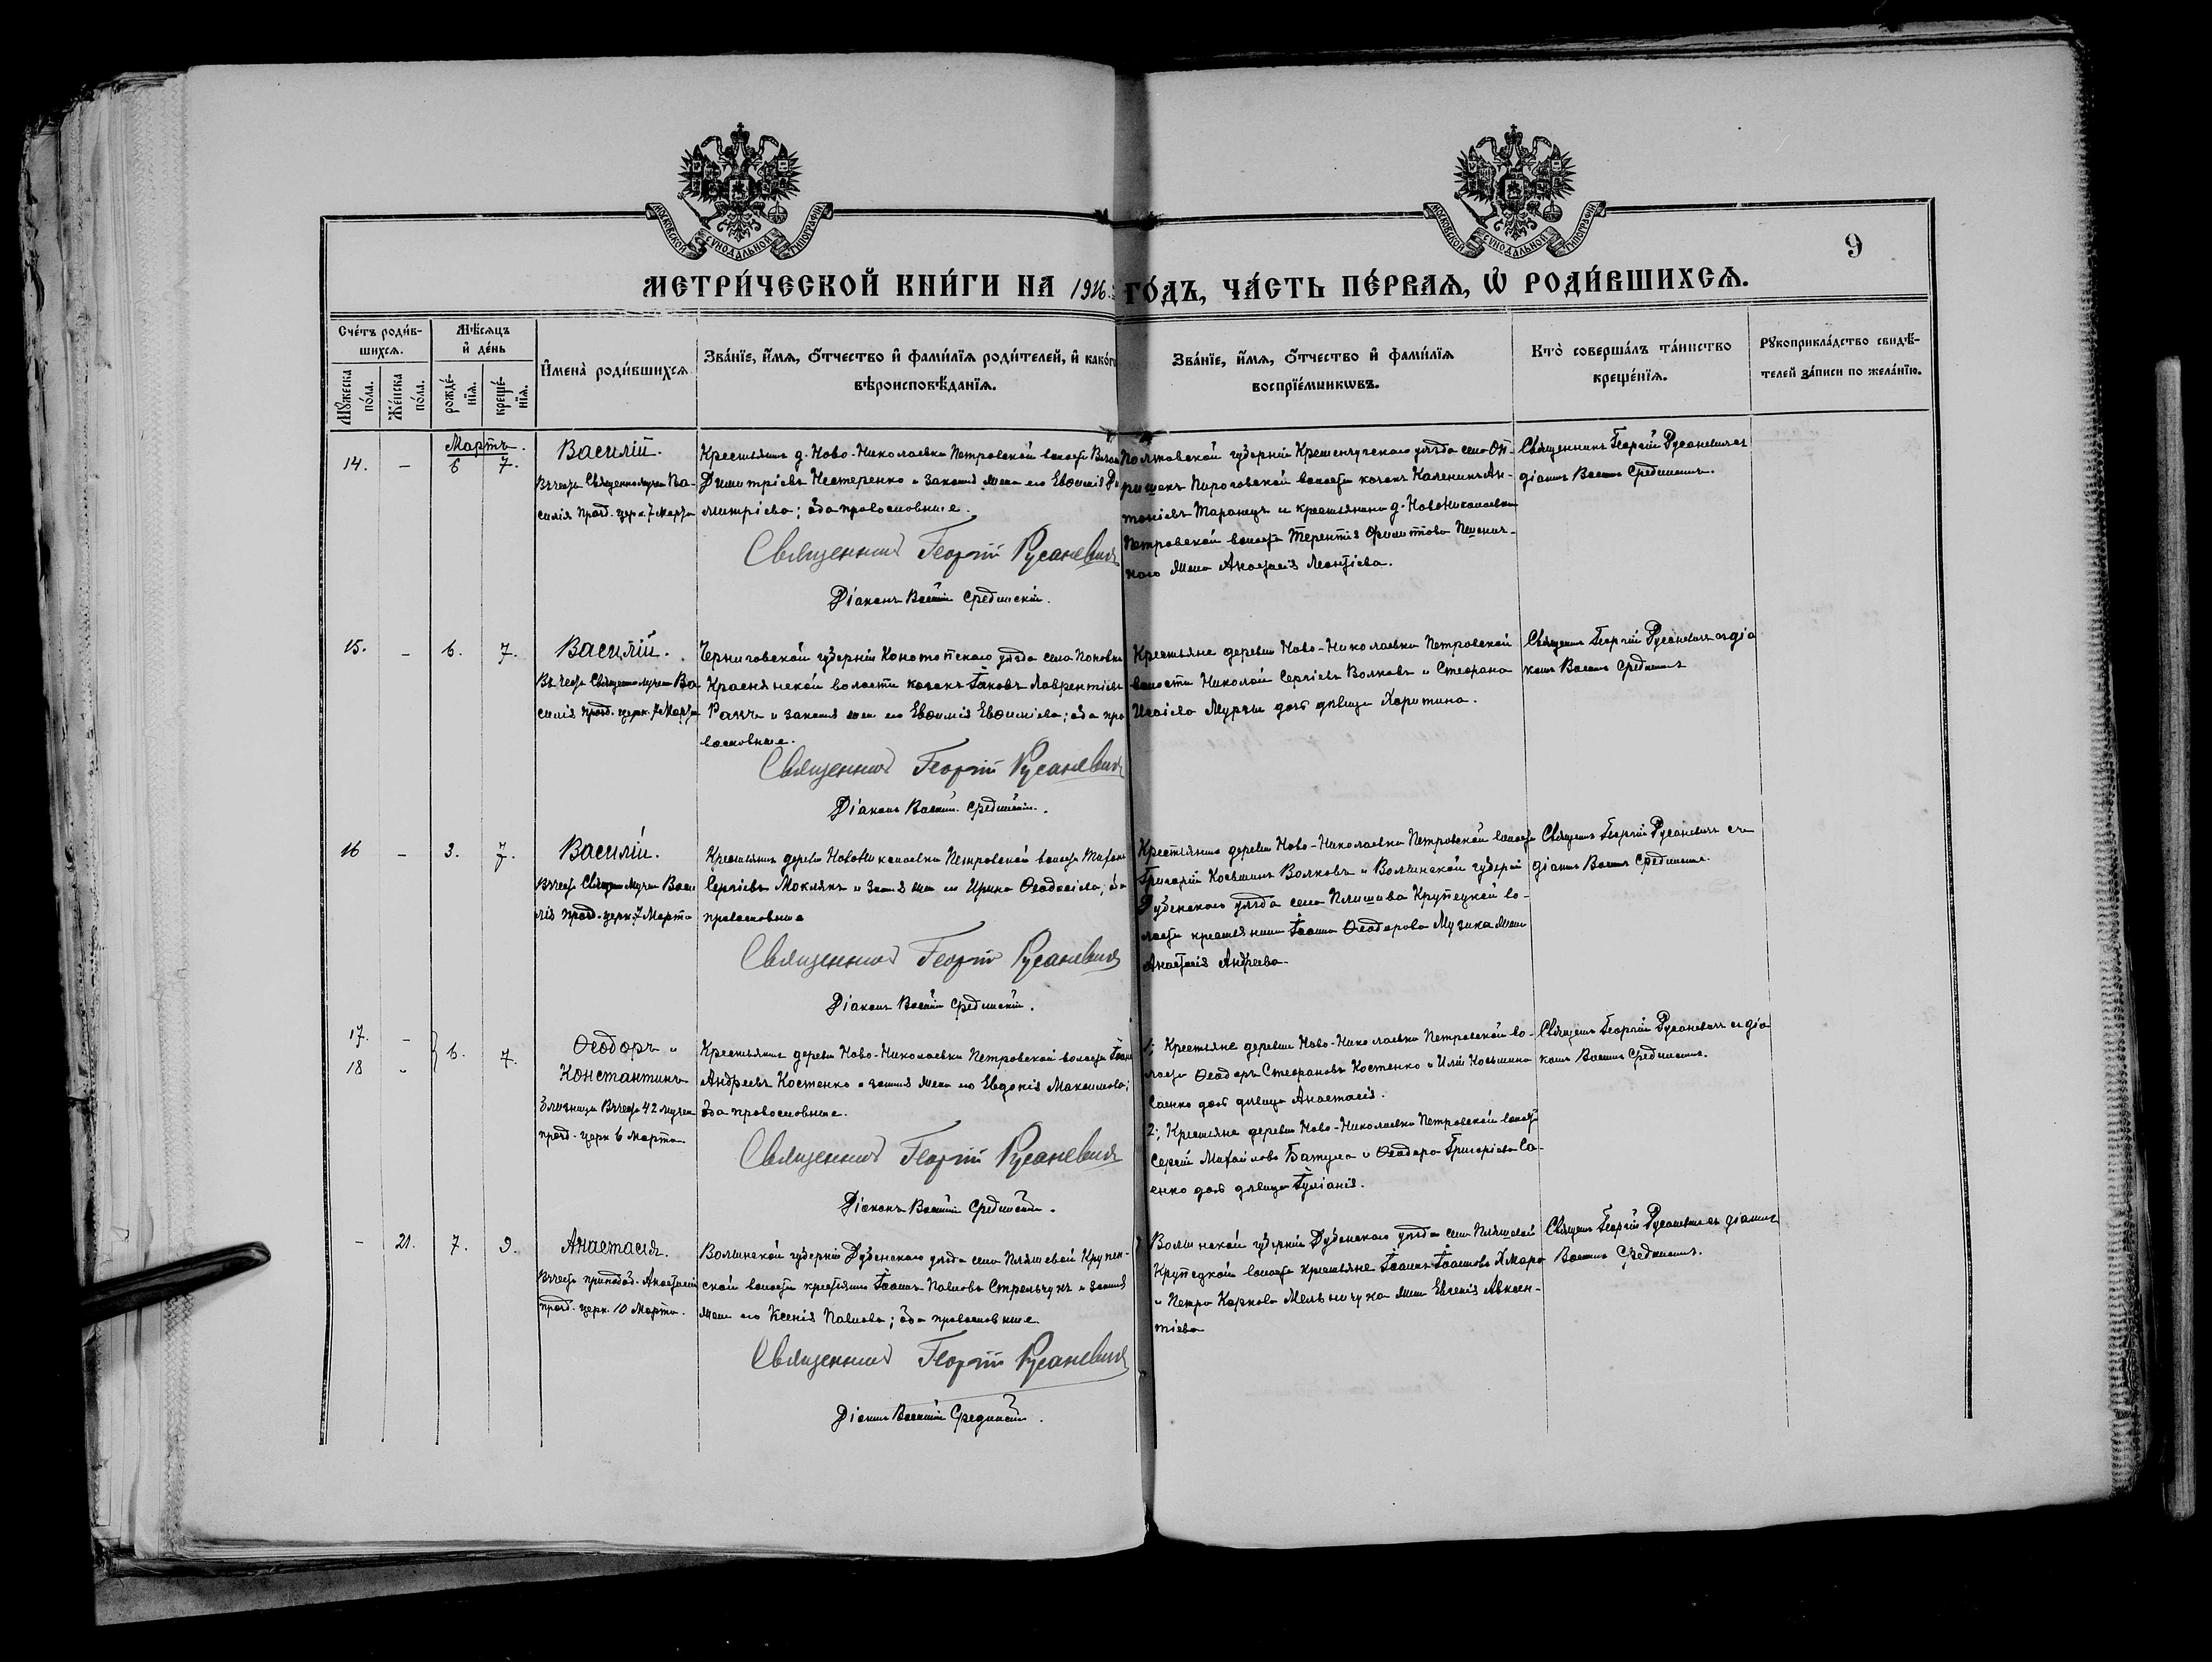 МОСКОВСКОЙ СѴНОДАЛЬНОЙ ТИПОГРАФІИ
МОСКОВСКОЙ СѴНОДАЛЬНОЙ ТИПОГРАФІИ
9
МЕТРИ́ЧЕСКОЙ КНИ́ГИ НА 1916 ГО́ДЪ, ЧА́СТЬ ПЕ́РВАѦ, Ѡ҆ РОДИ́ВШИХСѦ.
Сче́тъ роди́в-
шихсѧ.
Мꙋ́жеска по́ла.
Же́нска по́ла.
Мѣ́сѧцъ
и҆ де́нь
рожде́-
нїѧ.
креще́-
нїѧ.
И҆мена̀ роди́вшихсѧ
Зва́нїе, и҆́мѧ, ѻ҆́тчество и҆ фамі́лїѧ роди́телей, и҆ како́гѡ
вѣроисповѣ́данїѧ.
Зва́нїе, и҆́мѧ, ѻ҆́тчество и҆ фамі́лїѧ
воспрїе́мникѡвъ.
Кто̀ соверша́лъ та́инство
креще́нїѧ.
Рꙋкоприкла́дство свидѣ́-
телей за́писи по жела́нїю.
Мартъ.
14. - 6 7.
Василій.
Въ честь Священномуч Ва-
силія празд. церк. 7 Марта
Крестьянинъ д. Ново-Николаевки Петровской волости
Димитріевъ Нестеренко и законная жена его Евѳимія Ди
митріева; оба православные.
Священникъ Георгій Русаневичъ
Діаконъ Василій Срединскій.
Полтавской губерніи Кременчугскаго уѣзда села Оп-
ришекъ Пироговской волости козакъ Каленикъ Ан-
тоніевъ Таранецъ и крестьянина д. Новониколаевки
Петровской волости Терентія Филиппова Пшенич-
наго жена Анастасія Леонтіева.
Священникъ Георгій Русаневичъ съ
діакономъ Василіемъ Срединскимъ.
15. - 6. 7.
Василій.
Въ честь Священномуч Ва
силія празд. церк. 7 Марта
Черниговской губерніи Конотопскаго уѣзда села Поповки
Краснянской волости козакъ Іаковъ Лаврентіевъ
и законная жена его Евѳимія Евѳиміева; оба пра
вославные.
Священникъ Георгій Русаневичъ
Діаконъ Василій Срединскій.
Крестьяне деревни Ново-Николаевки Петровской
волости Николай Сергіевъ Волковъ и Стефана
Исаіева дочь дѣвица Харитина.
Священникъ Георгій Русаневичъ съ діа
кономъ Василіемъ Срединскимъ
16 - 3. 7.
Василій.
Въ честь Священномуч Васи
лія празд. церк. 7 Марта
Крестьянинъ деревни Новониколаевки Петровской волости
Сергіевъ Моклякъ и законная жена его Ирина Ѳеодосіева; оба
православные
Священникъ Георгій Русаневичъ
Діаконъ Василій Срединскій.
Крестьянинъ деревни Ново-Николаевки Петровской волости
Григорій Косьминъ Волковъ и Волынской губерніи
Дубенскаго уѣзда села Пляшива Крупецкой во-
лости крестьянина Іоанна Ѳеодорова Музыка жена
Анастасія Андреева
Священникъ Георгій Русаневичъ съ
діакономъ Василіемъ Срединскимъ.
17. -
18 - 6. 7.
Ѳеодоръ и
Константинъ
близнецы Въ честь 42 мучен
празд. церк 6 Марта
Крестьянинъ деревни Ново-Николаевки Петровской волости Іоаннъ
Андреевъ Костенко и законная жена его Евдокія Максимова;
оба православные.
Священникъ Георгій Русаневичъ
Діаконъ Василій Срединскій.
1; Крестьяне деревни Ново-Николаевки Петровской во-
лости Ѳеодоръ Стефановъ Костенко и Иліи Косьмина
Саенко дочь дѣвица Анастасія.
2; Крестьяне деревни Ново-Николаевки Петровской волости
Сергій Михайловъ Батула и Ѳеодора Григоріева Са-
енко дочь дѣвица Іуліанія.
Священникъ Георгій Русаневичъ съ діа
кономъ Василіемъ Срединскимъ.
- 21. 7. 9.
Анастасія.
Въ честь преподоб. Анастасіи
празд. церк. 10 Марта.
Волынской губерніи Дубенскаго уѣзда села Пляшевой Крупец-
кой волости крестьянинъ Іоаннъ Павловъ Стрельчукъ и законная
жена его Ксенія Павлова; оба православные
Священникъ Георгій Русаневичъ
Діаконъ Василій Срединскій.
Волынской губерніи Дубенскаго уѣзда села Пляшевой
Крупецкой волости крестьяне Іоаннъ Іоанновъ Хмара
и Петра Карпова Мельничука жена Евгенія Авксен-
тіева
Священникъ Георгій Русаневичъ съ діакономъ
Василіемъ Срединскимъ.